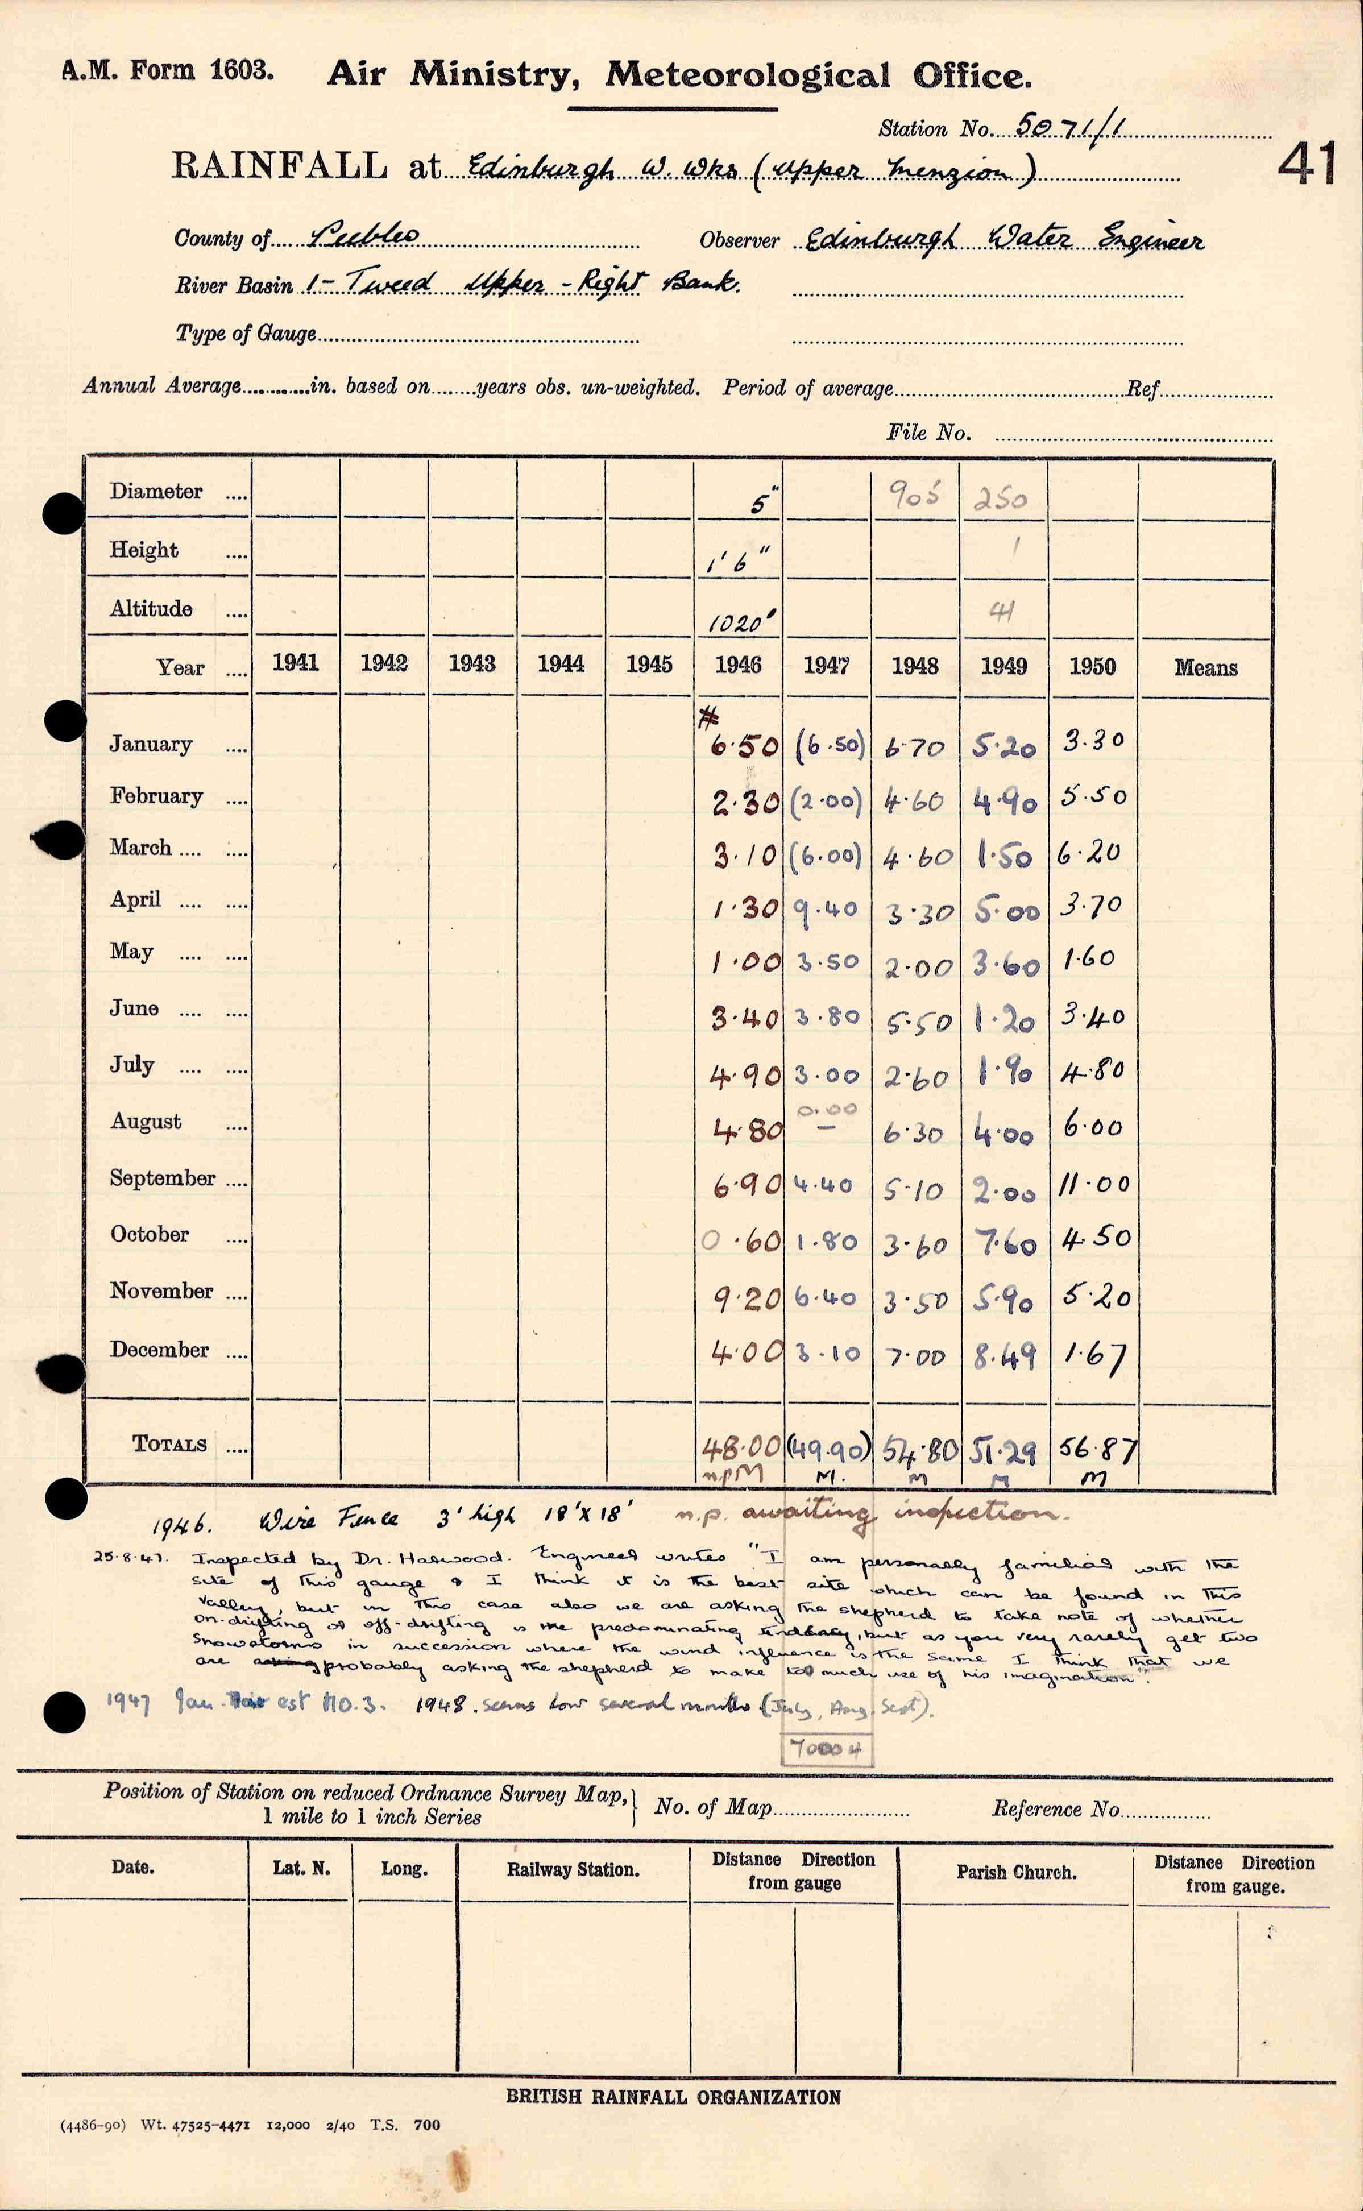 A.M. Form 1603. Air Ministry, Meteorological Office.
Station No. 5071/1
41
RAINFALL at Edinburgh W. Wks (Upper Menzion)
County of Peebles Observer Edinburgh Water Engineer
River Basin 1- Tweed Upper - Right Bank.
Type of Gauge
Annual Average in. based on years obs. un-weighted. Period of average Ref.
File No.
Diameter 5" 905 250
Height 1' 6" 1
Altitude 1020' 41
Year 1941 1942 1943 1944 1945 1946 1947 1948 1949 1950 Means
#
January 6.50 (6.50) 6.70 5.20 3.30
February 2.30 (2.00) 4.60 4.90 5.50
March 3.10 (6.00) 4.60 1.50 6.20
April 1.30 9.40 3.30 5.00 3.70
May 1.00 3.50 2.00 3.60 1.60
June 3.40 3.80 5.50 1.20 3.40
July 4.90 3.00 2.60 1.90 4.80
0.00
August 4.80 — 6.30 4.00 6.00
September 6.90 4.40 5.10 2.00 11.00
October 0.60 1.80 3.60 7.60 4.50
November 9.20 6.40 3.50 5.90 5.20
December 4.00 3.10 7.00 8.49 1.67
TOTALS 48.00 (49.90) 54.80 51.29 56.87
npM M. M M M
1946. Wire Fence 3' high 18' x 18' n.p. awaiting inspection.
25.8.47. Inspected by Dr. Harwood. Engineer writes "I am personally familiar with the
site of this gauge & I think it is the best site which can be found in this
valley, but in this case also we are asking the shepherd to take note of whether
on-drifting or off-drifting is the predominating tendency, but as you very rarely get two
snowstorms in succession where the wind influence is the same I think that we
are asking probably asking the shepherd to make too much use of his imagination".
1947 Jan. Mar est NO.3. 1948. seems low several months (July, Aug. Sept).
70004
Position of Station on reduced Ordnance Survey Map, 1 mile to 1 inch Series } No. of Map Reference No.
Date. Lat. N. Long. Railway Station. Distance Direction from gauge Parish Church. Distance Direction from gauge.
BRITISH RAINFALL ORGANIZATION
(4486-90) Wt. 47525-4471 12,000 2/40 T.S. 700